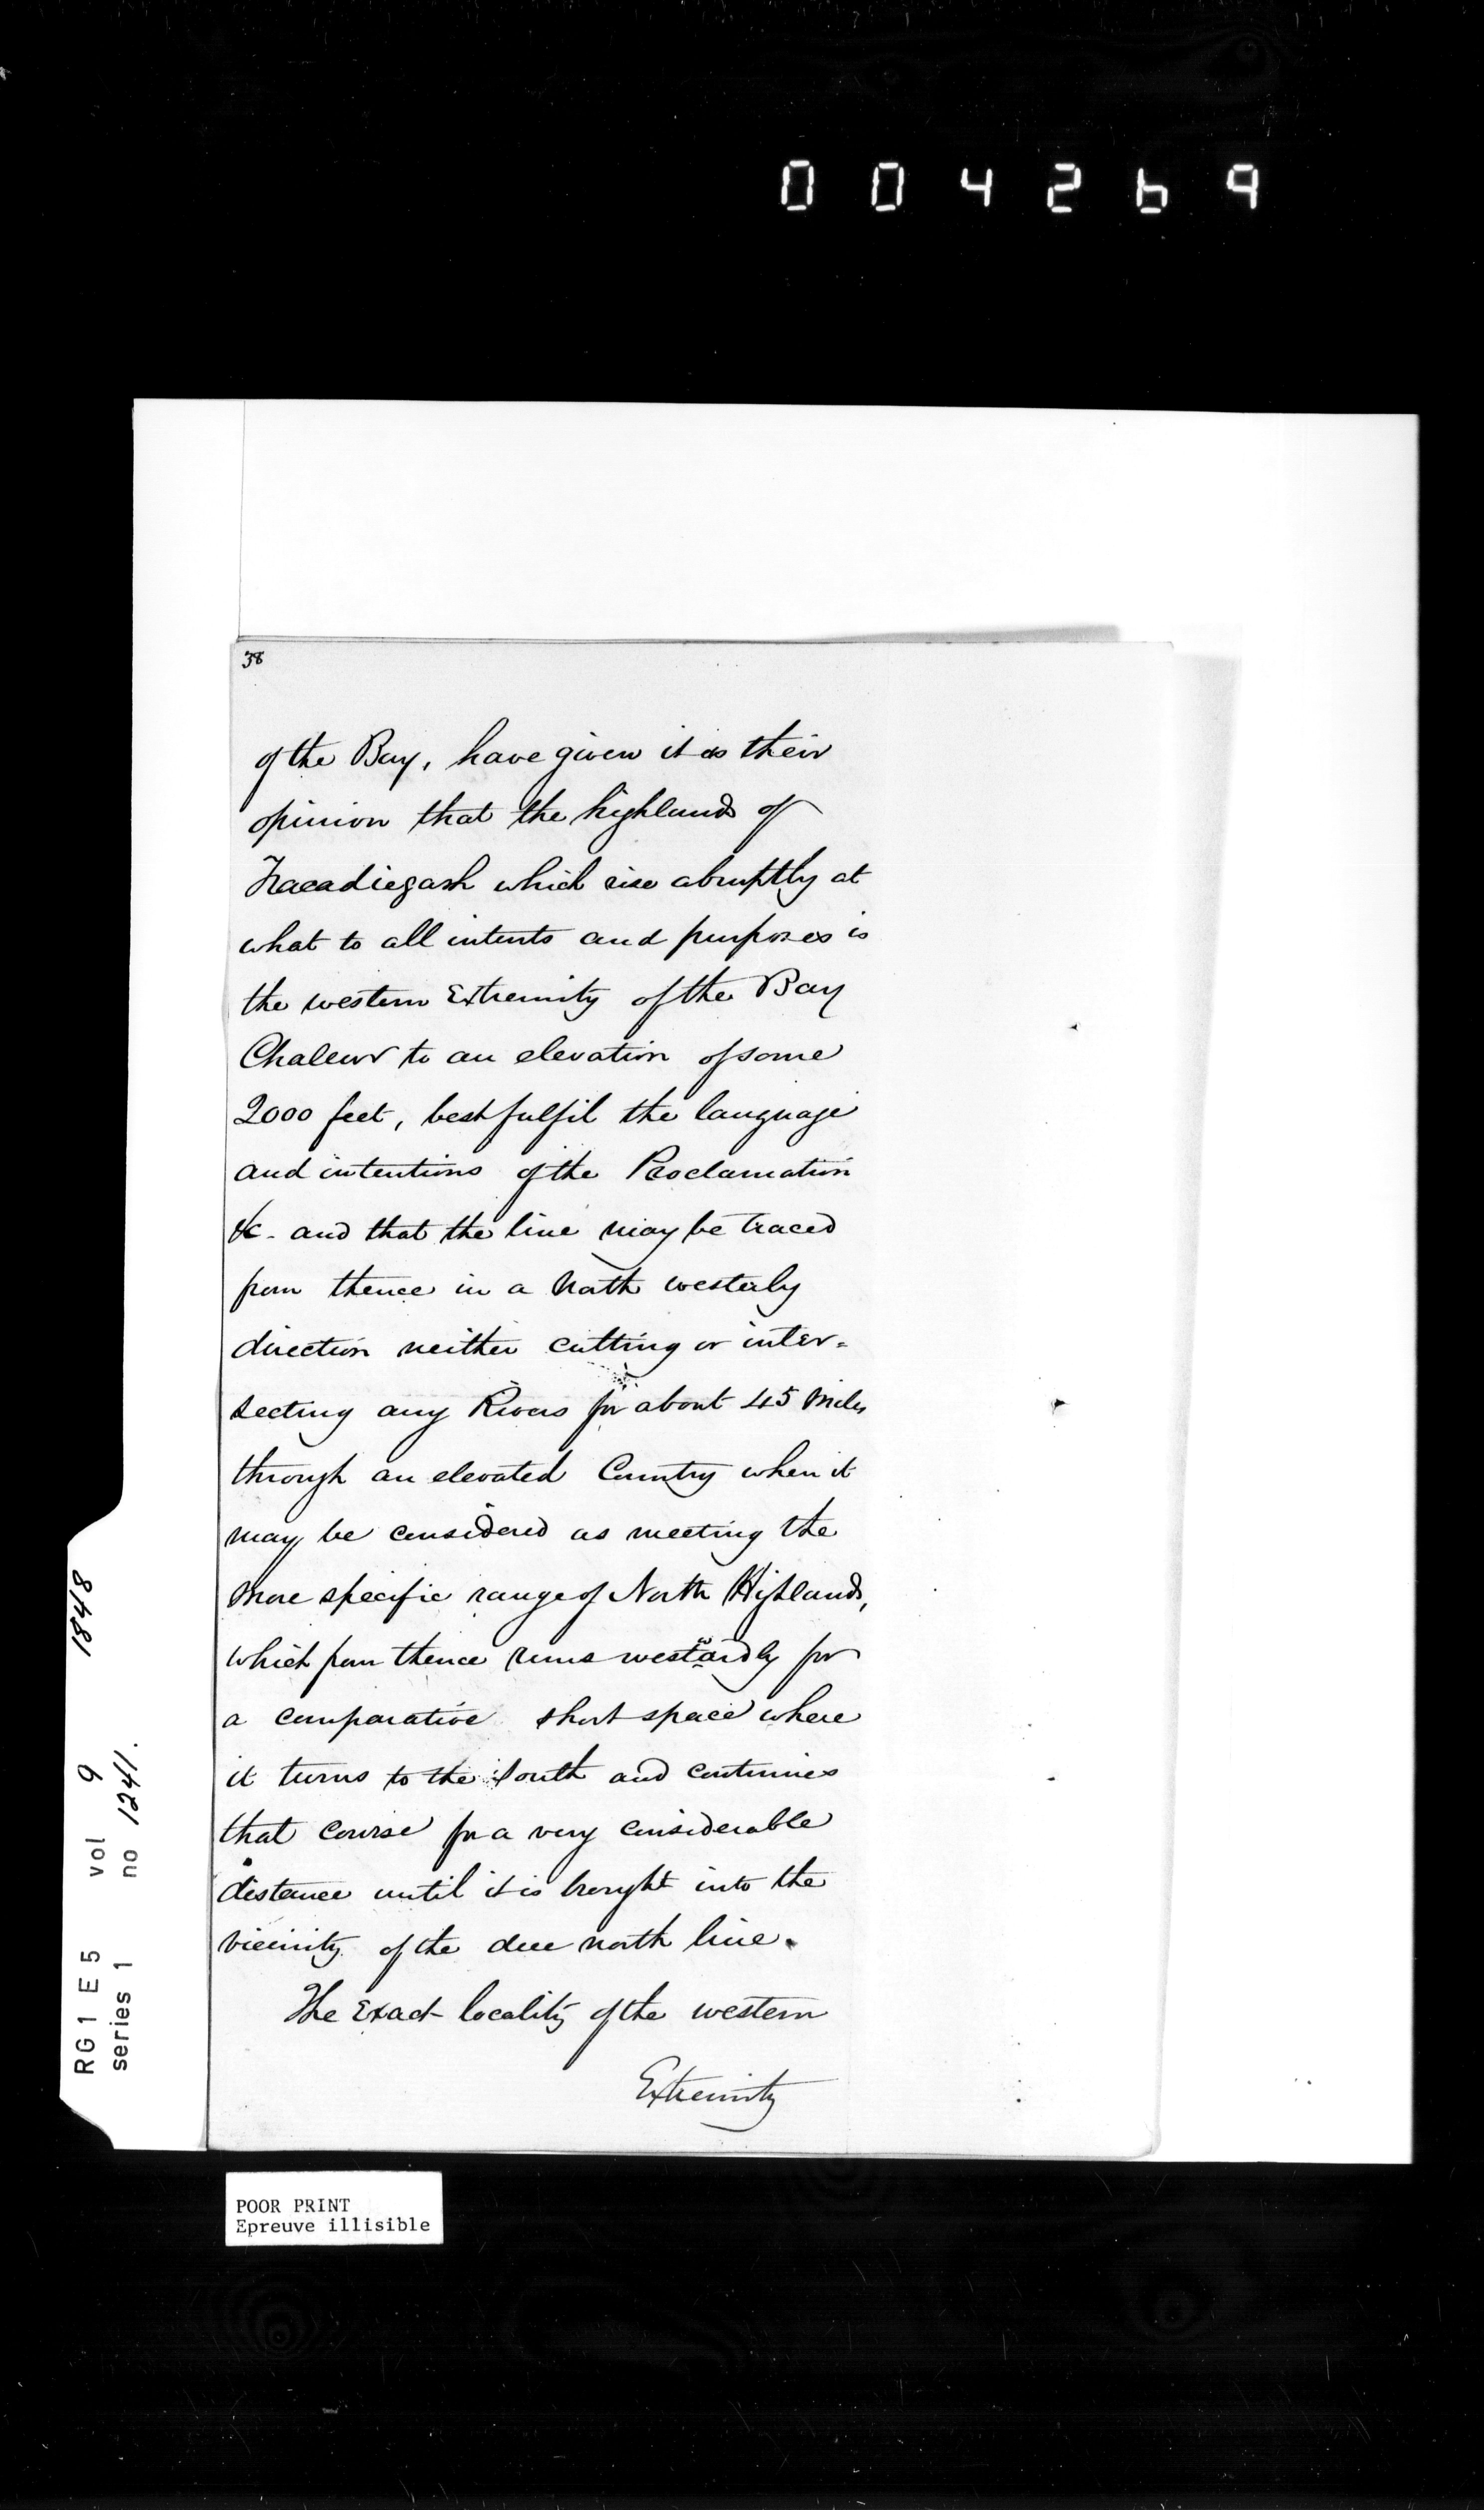 004269
38
of the Bay, have given it as their
opinion that the highlands of
Tracadiegash which rise abruptly at
what to all intents and purposes is
the western Extremity of the Bay
Chaleur to an elevation of some
2000 feet, best fulfil the language
and intentions of the Proclamation
&c. and that the line may be traced
from thence in a North westerly
direction neither cutting or inter=
secting any Rivers for about 45 Miles
through an elevated Country when it
may be considered as meeting the
more specific range of North Highlands,
which from thence runs westwardly for
a comparative short space where
it turns to the South and continues
that course for a very considerable
distance until it is brought into the
vicinity of the due north line.
The Exact locality of the western
Extremity
RG1 E5 vol 9 1848
series 1 no 1241.
POOR PRINT
Epreuve illisible